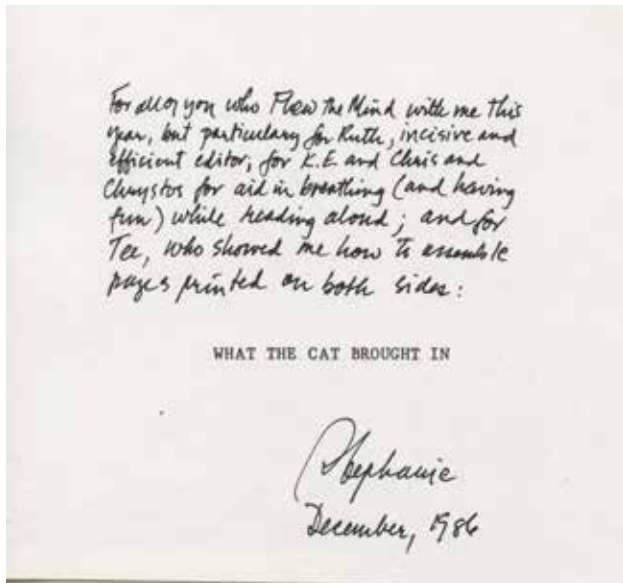 For all of you who Flew the Mind with me this
year, but particulary for Ruth, incisive and
efficient editor, for K.E. and Chris and
Chrystos for aid in breathing (and having
fun) while reading aloud; and for
Tee, who showed me how to assemble
pages printed on both sides:
WHAT THE CAT BROUGHT IN
Stephanie
December, 1986